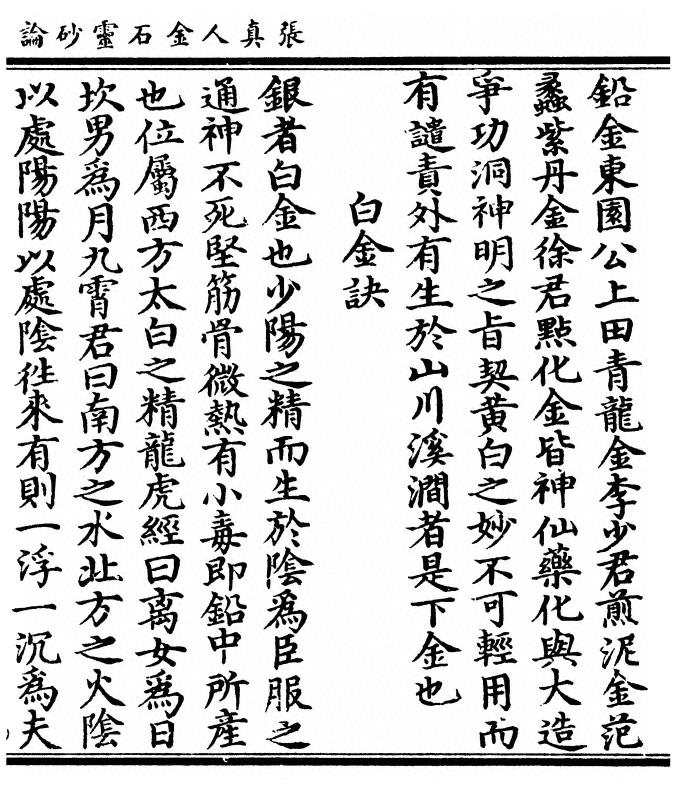 張真人金石靈砂論
鉛金東園公上田青龍金李少君煎泥金范
蠡紫丹金徐君點化金皆神仙藥化與大造
爭功洞神明之旨契黃白之妙不可輕用而
有譴責外有生於山川溪澗者是下金也
白金訣
銀者白金也少陽之精而生於陰為臣服之
通神不死堅筋骨微熱有小毒即鉛中所產
也位屬西方太白之精龍虎經曰离女為日
坎男為月九霄君曰南方之水北方之火陰
以處陽陽以處陰往來有則一浮一沉為夫